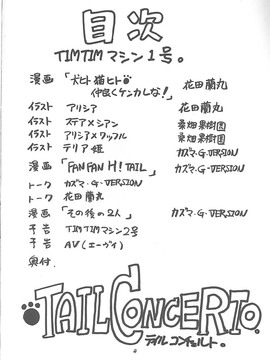 目次
TIMTIMマシン1号。
漫画 「犬ヒト猫ヒト
仲良くケンカしな!」 花田蘭丸
イラスト アリシア 花田蘭丸
イラスト ステア×シアン 桑畑果樹園
イラスト アリシア×ワッフル 桑畑果樹園
イラスト テリア姫 カズマ・G・VERSION
漫画 「FAN FAN H! TAIL」 カズマ・G・VERSION
トーク カズマ・G・VERSION
トーク 花田蘭丸
漫画 「その後の2人」 カズマ・G・VERSION
予告 TIMTIMマシン2号
予告 AV(エーヴイ)
奥付
TAIL CONCERTO。
テイルコンチェルト。
4